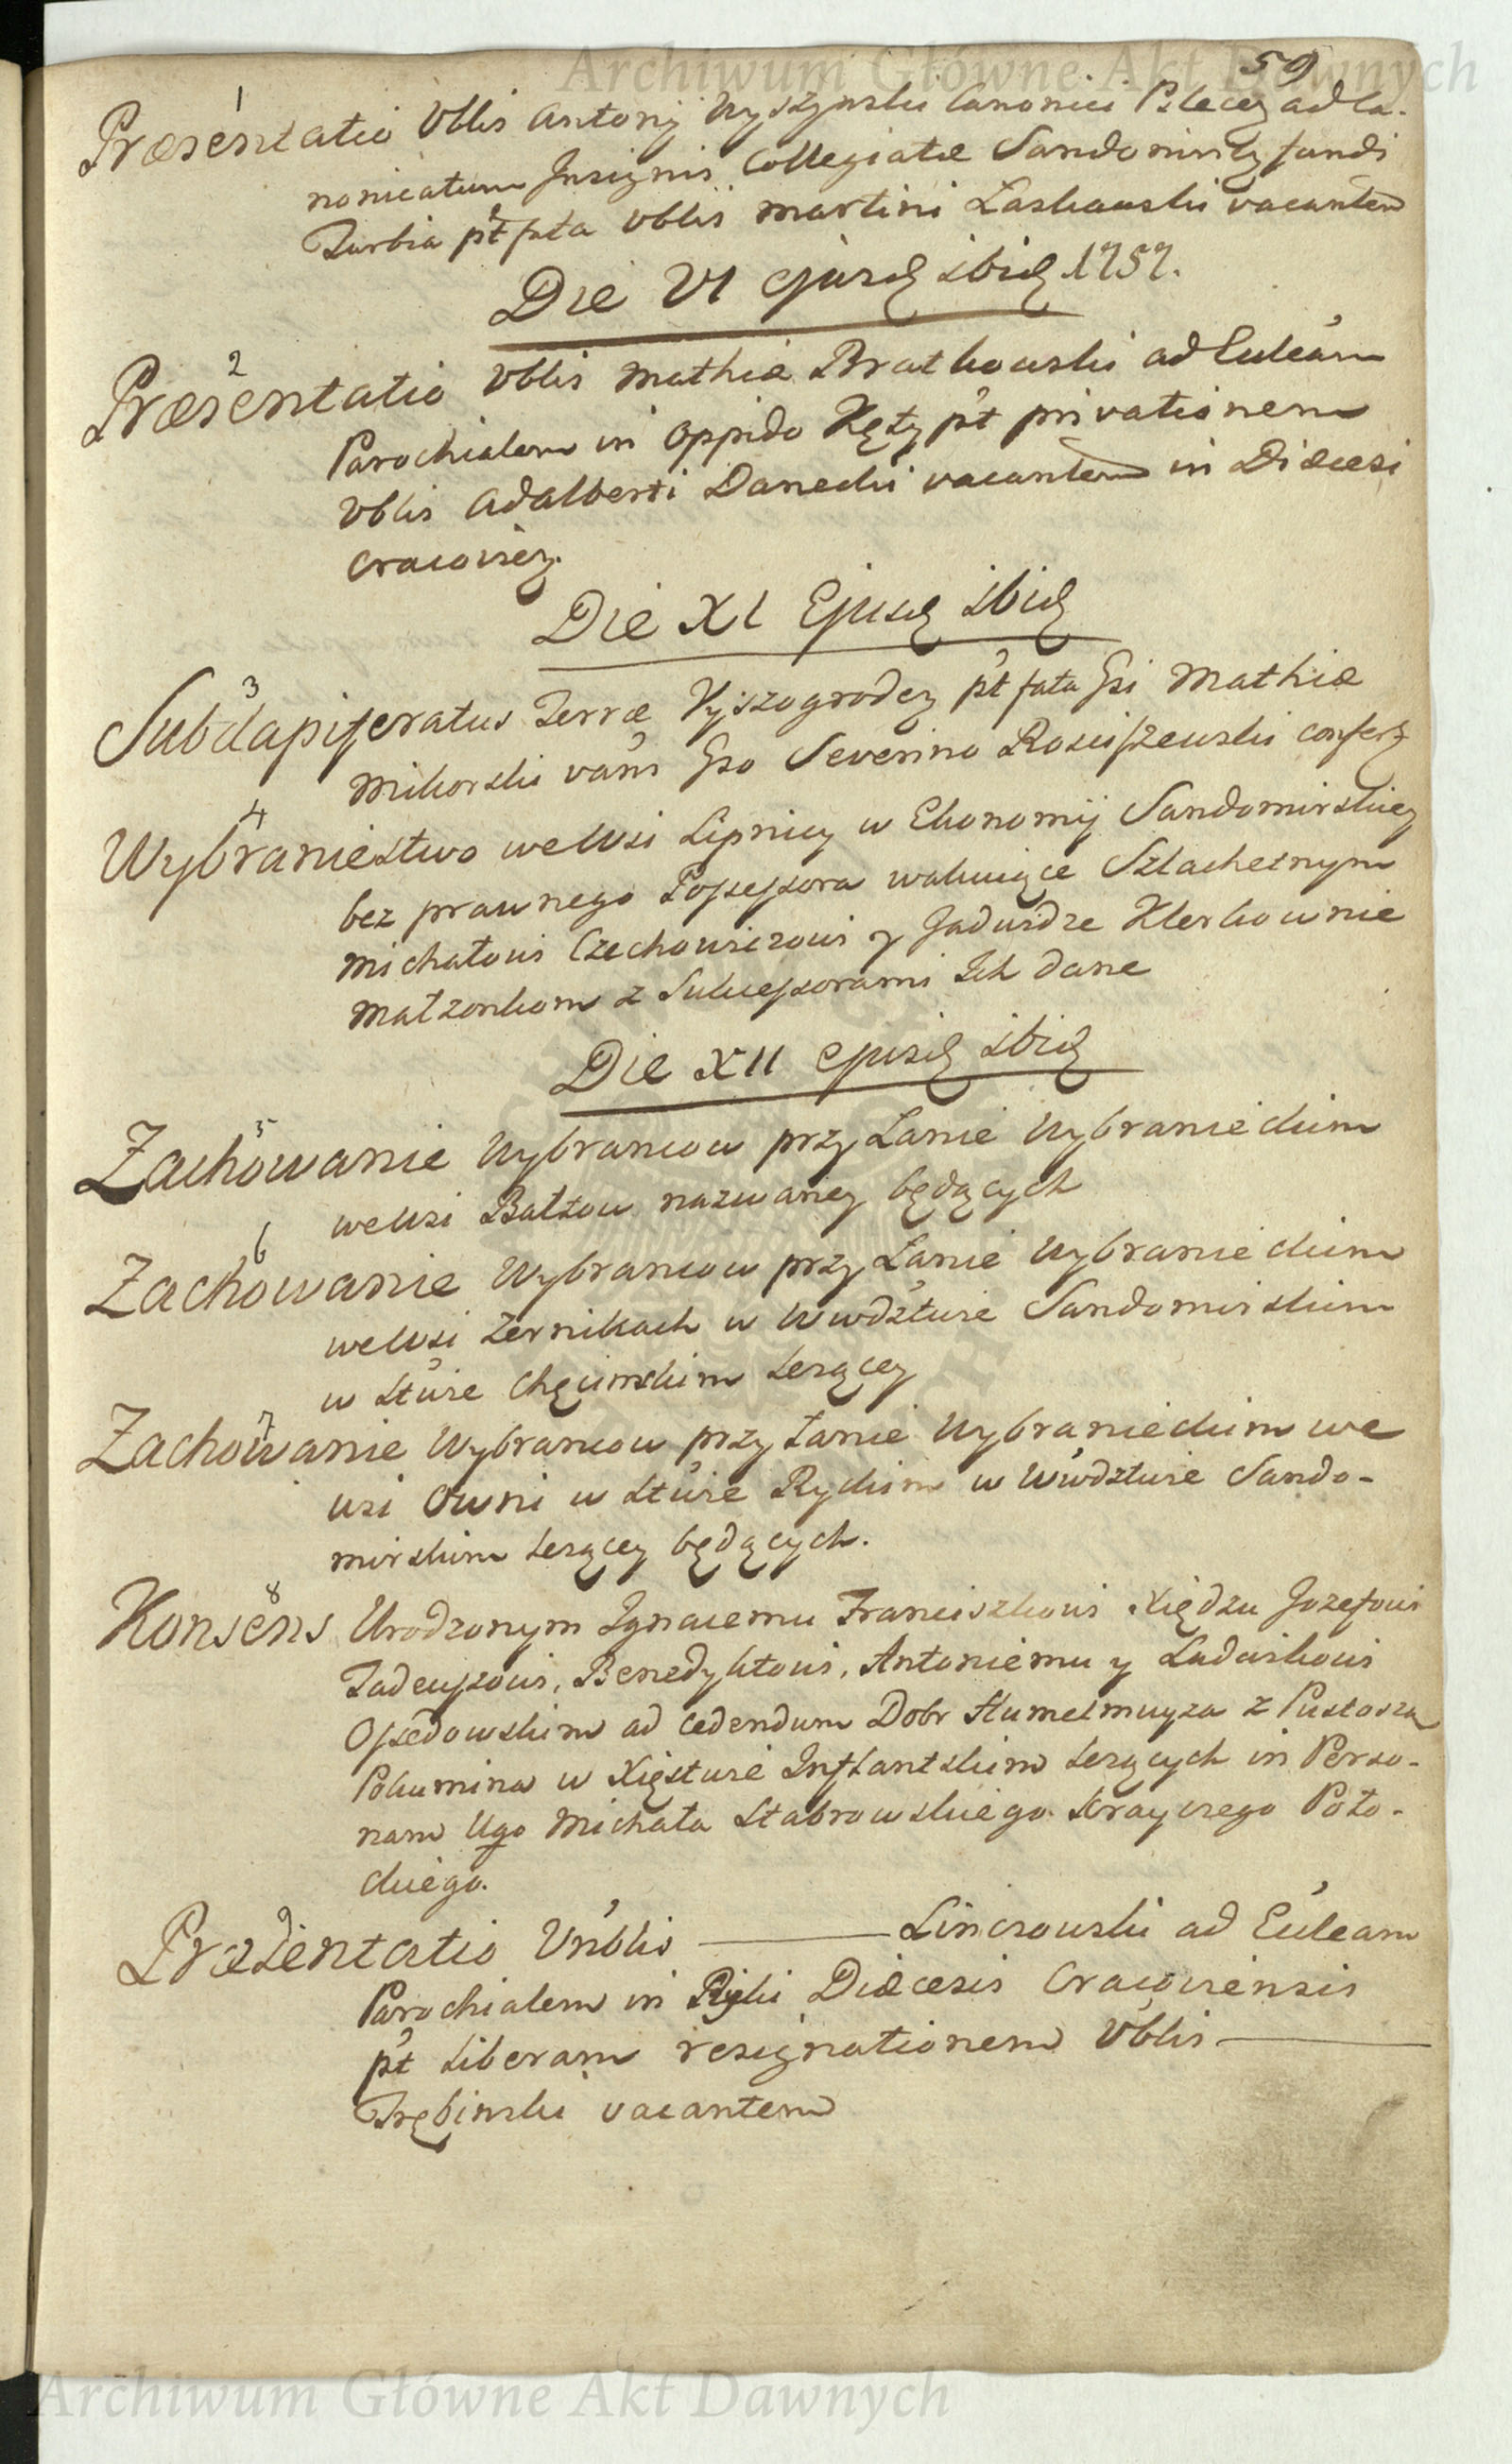 Archiwum Główne Akt Dawnych
59
1
Præsentatio Vblis Antonij Wyszynski Canonici Plocen ad Ca-
nonicatum Insignis Collegiatæ Sandomirien fundi
Turbia pt fata Vblis Martini Laskauski vacantem
Die VI ejusd ibid 1757.
2
Præsentatio Vblis Mathiæ Bratkowski ad Eccleam
Parochialem in Oppido Kęty pt privationem
Vblis Adalberti Danecki vacantem in Diæcesi
Cracovien.
Die XI Ejusd ibid
3
Subdapiferatus Terræ Wyszogroden pt fata Gsi Mathiæ
Mikorski vans Gso Severino Rosciszewski confert
4
Wybraniectwo we Wsi Lipnicy w Ekonomij Sandomirskiey
bez prawnego Possessora wakuiące Szlachetnym
Michałowi Czechowiczowi y Jadwidze Klerkownie
Małzonkom z Sukcessorami Ich dane
Die XII ejusd ibid
5
Zachowanie Wybrancow przy Łanie Wybranieckim
we Wsi Bałtow nazwaney będących
6
Zachowanie Wybrancow przy Łanie Wybranieckim
we Wsi Zernikach w Wwdztwie Sandomirskim
w Stwie Chęcinskim Lezącey
7
Zachowanie Wybrancow przy Łanie Wybranieckim we
wsi Owni w Stwie Ryckim w Wwdztwie Sando-
mirskim Lezącey będących.
8
Konsens Urodzonym Ignacemu Franciszkowi Xiędzu Jozefowi
Tadeuszowi, Benedyktowi, Antoniemu y Ludwikowi
Ossedowskim ad cedendum Dobr Humelmuyza z Pustosza
Pokumina w Xięstwie Inflantskim Lezących in Perso-
nam Ugo Michała Stabrowskiego Kraycego Poło-
ckiego.
9
Præzentatio Vnblis ——— Linczowski ad Eccleam
Parochialem in Ryki Diæcesis Cracoviensis
pt Liberam resignationem Vblis ———
Trębinski vacantem
Archiwum Główne Akt Dawnych